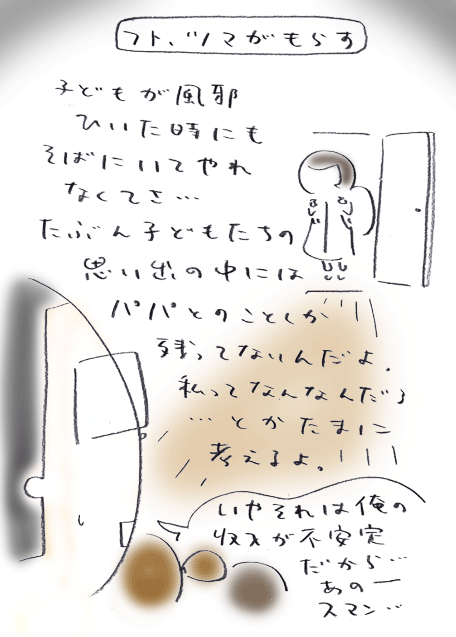 フト、ツマがもらす
子どもが風邪
ひいた時にも
そばにいてやれ
なくてさ…
たぶん子どもたちの
思い出の中には
パパとのことしか
残ってないんだよ。
私ってなんなんだろ
…とかたまに
考えるよ。
いやそれは俺の
収入が不安定
だから…
あのー
スマン…